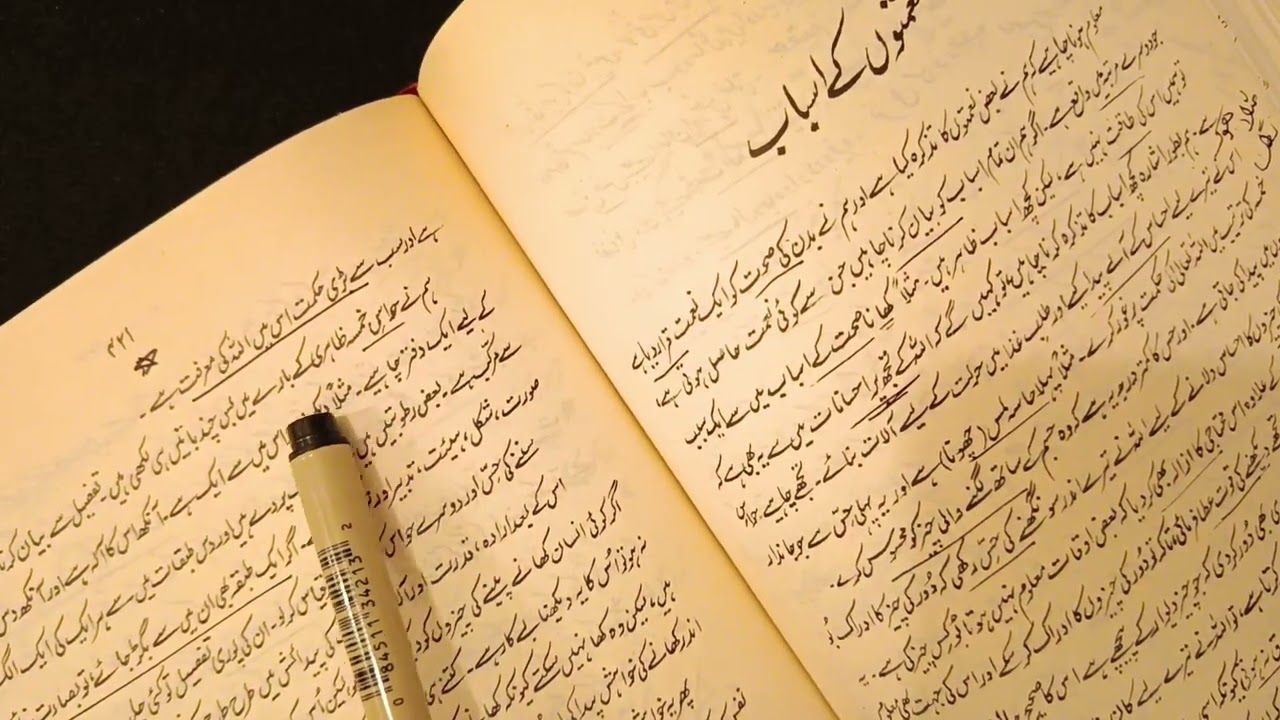 نعمتوں کے اسباب
معلوم ہونا چاہیے کہ ہم نے بعض نعمتوں کا تذکرہ کیا ہے اور ہم نے بدن کی صحت کو ایک نعمت قرار دیا ہے
جو دوسرے مرتبہ میں واقع ہے۔ اگر ہم ان تمام اسباب کو بیان کرنا چاہیں جن سے کوئی نعمت حاصل ہوتی ہے،
تو ہمیں اس کی طاقت نہیں ہے، لیکن کچھ اسباب ظاہر ہیں۔ مثلاً کھانا صحت کے اسباب میں سے ایک سبب
ہے۔ ہم بطور اشارہ کچھ اسباب کا تذکرہ کرنا چاہیں، تو کہیں گے کہ اللہ کے تجھ پر احسانات میں سے یہ بھی ہے کہ
اس نے تیرے لیے احساس کے آلے پیدا کیے اور طلب غذا میں حرکت کے لیے آلات بنائے۔ تجھے چاہیے حواس
خمسہ کی ترتیب میں اللہ تعالیٰ کی حکمت پر غور کرے۔ مثلاً پہلا حاسہ لمس (چھونا) ہے اور یہ پہلی حس ہے جو جاندار
میں پیدا کی جاتی ہے۔ اور حس کا کمتر درجہ یہ ہے کہ وہ جسم کے ساتھ لگنے والی چیز کو محسوس کرے۔
چیزوں کا احساس دلانے کے لیے اللہ نے تیرے اندر سونگھنے کی حس رکھی کہ دور کی چیز کا ادراک تو
کے علاوہ اس محتاجی کا ازالہ بھی کر دیا کہ بعض اوقات معلوم نہیں ہوتا بو کس چیز کی ہے۔
دیکھنے کی قوت عطا فرمائی تاکہ تو دور کی چیزوں کا ادراک کر سکے اور اس کی جہت بھی معلوم
بھی دور کر دی کہ جو چیز دیوار کے پیچھے ہے اس کا صحیح
تو اللہ نے تیرے لیے
۳۲۱
ہے اور سب سے بڑی حکمت اس میں اللہ کی معرفت ہے۔
ہم نے حواس خمسہ ظاہری کے بارے میں بس چند باتیں ہی لکھی ہیں۔ تفصیل سے بیان کرنے
کے لیے ایک دفتر چاہیے۔ مثلاً اس میں سے ایک ہے۔ آنکھ اس کا آلہ ہے اور آنکھ دس
سے مرکب ہے۔ بعض رطوبتیں ہیں پردے ہیں اور دس طبقات میں سے ہر ایک کی ایک الگ
صورت، شکل، ہیئت، تدبیر اور اگر ایک طبقہ بھی ان میں سے بگڑ جائے، تو بصارت
سننے کی حس اور دوسرے حواس قیاس کر لو۔ ان کی پوری تفصیل تو کئی
اس کے بعد ارادہ، قدرت اور کی پیدائش میں طرح طرح
اگر کوئی انسان کھانے پینے کی چیزوں کو لیکن اس
نہ ہو تو اس کا یہ دیکھنا بے کار ہے۔ کتنے ہی
ہیں، لیکن وہ کھا نہیں سکتے کیونکہ
اندر کھانے کی خواہش پیدا کی
پھر یہ خواہش
0 84511 34243 2